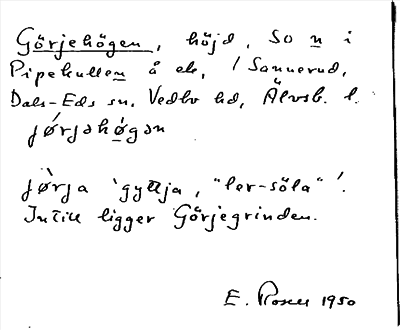 Görjehögen, höjd, SO n i
Pipekullen å ek, 1 Sannerud,
Dals-Eds sn. Vedbo hd, Älvsb. l.
jørjəhøgən
jørja 'gyttja, "ler-söla"'.
Intill ligger Görjegrinden.
E. Rosell 1950